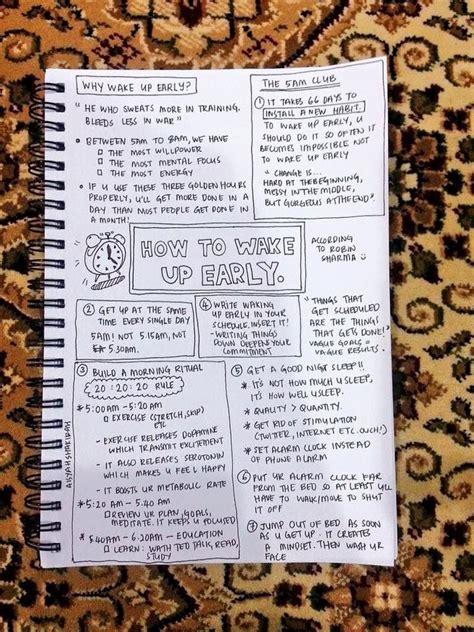 WHY WAKE UP EARLY?
"HE WHO SWEATS MORE IN TRAINING.
BLEEDS LESS IN WAR"
• BETWEEN 5AM TO 8AM, WE HAVE
□ THE MOST WILLPOWER
□ THE MOST MENTAL FOCUS
□ THE MOST ENERGY
• IF U USE THESE THREE GOLDEN HOURS
PROPERLY, U'LL GET MORE DONE IN A
DAY THAN MOST PEOPLE GET DONE IN
A MONTH!
THE 5AM CLUB
① IT TAKES 66 DAYS TO
INSTALL A NEW HABIT.
TO WAKE UP EARLY, U
SHOULD DO IT SO OFTEN IT
BECOMES IMPOSSIBLE NOT
TO WAKE UP EARLY
"CHANGE IS...
HARD AT THE BEGINNING,
MESSY IN THE MIDDLE,
BUT GORGEOUS AT THE END"
HOW TO WAKE
UP EARLY.
ACCORDING
TO ROBIN
SHARMA
② GET UP AT THE SAME
TIME EVERY SINGLE DAY
5AM! NOT 5.15AM, NOT
5.30AM.
④ WRITE WAKING
UP EARLY IN YOUR
SCHEDULE. INSERT IT!
- WRITING THINGS
DOWN DEEPENS YOUR
COMMITMENT
"THINGS THAT
GET SCHEDULED
ARE THE THINGS
THAT GETS DONE!"
VAGUE GOALS =
VAGUE RESULTS.
③ BUILD A MORNING RITUAL
20:20:20 RULE
* 5:00AM - 5:20AM
□ EXERCISE (STRETCH, SKIP)
ETC
- EXERCISE RELEASES DOPAMINE
WHICH TRANSMIT EXCITEMENT
- IT ALSO RELEASES SEROTONIN
WHICH MAKES U FEEL HAPPY
- IT BOOSTS UR METABOLIC RATE
* 5:20 AM - 5.40 AM
□ REVIEW UR PLAN, GOALS,
MEDITATE. IT KEEPS U FOCUSED
* 5.40AM - 6.30AM - EDUCATION
□ LEARN: WATH TED TALK, READ,
STUDY
⑤ GET A GOOD NIGHT SLEEP!!
* IT'S NOT HOW MUCH U SLEEP,
IT'S HOW WELL U SLEEP.
* QUALITY > QUANTITY.
* GET RID OF STIMULATION
(TWITTER, INTERNET ETC. OUCH!)
* SET ALARM CLOCK INSTEAD
OF PHONE ALARM
⑥ PUT UR ALARM CLOCK FAR
FROM THE BED SO AT LEAST U'LL
HAVE TO WALK/MOVE TO SHUT
IT OFF
⑦ JUMP OUT OF BED AS SOON
AS U GET UP. IT CREATES
A MINDSET. THEN WASH UR
FACE